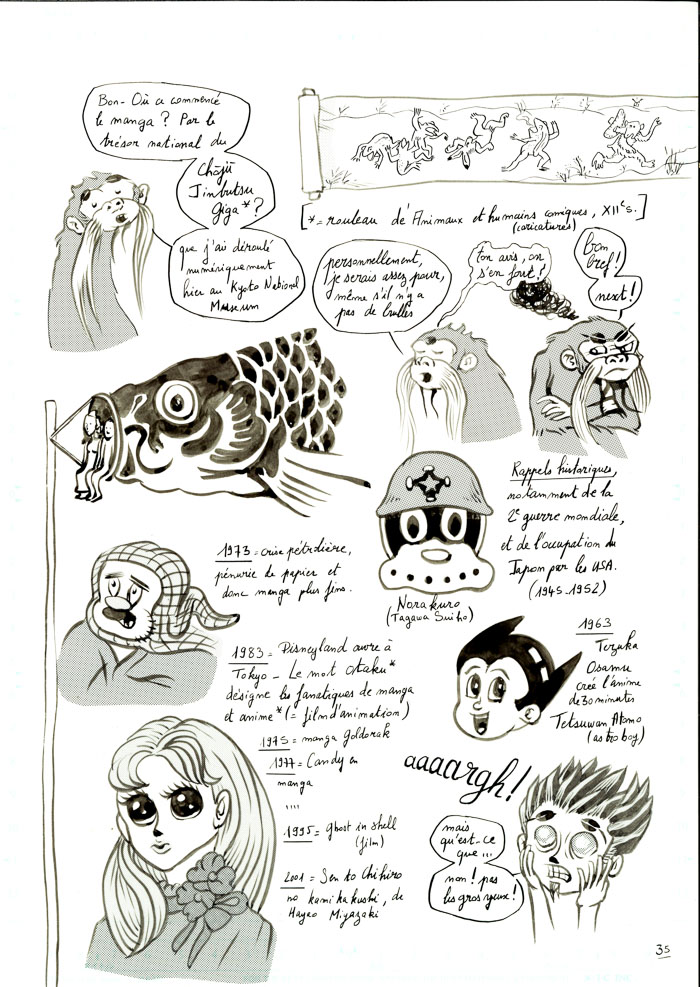 Bon - Où a commencé
le manga ? Par le
trésor national du
Chōjū
Jinbutsu
Giga * ?
que j'ai déroulé
numériquement
hier au Kyoto National
Museum
[* = rouleau de Animaux et humains comiques, XIIe s.]
(caricatures)
personnellement,
je serais assez pour,
même s'il n'y a
pas de bulles
ton avis, on
s'en fout !
bon
bref !
next !
Rappels historiques,
notamment de la
2e guerre mondiale,
et de l'occupation du
Japon par les USA.
(1945-1952)
Norakuro
(Tagawa Suiho)
1973 = crise pétrolière,
pénurie de papier et
donc manga plus fins.
1963
Tezuka
Osamu
crée l'anime
de 30 minutes
Tetsuwan Atomo
(astro boy)
1983 = Disneyland ouvre à
Tokyo - Le mot otaku*
désigne les fanatiques de manga
et anime * (= film d'animation)
1975 = manga Goldorak
1977 = Candy en
manga
....
1995 = Ghost in shell
(film)
2001 = Sen to Chihiro
no kamikakushi, de
Hayao Miyazaki
aaaargh!
mais
qu'est-ce
que ...
non ! pas
les gros yeux !
35